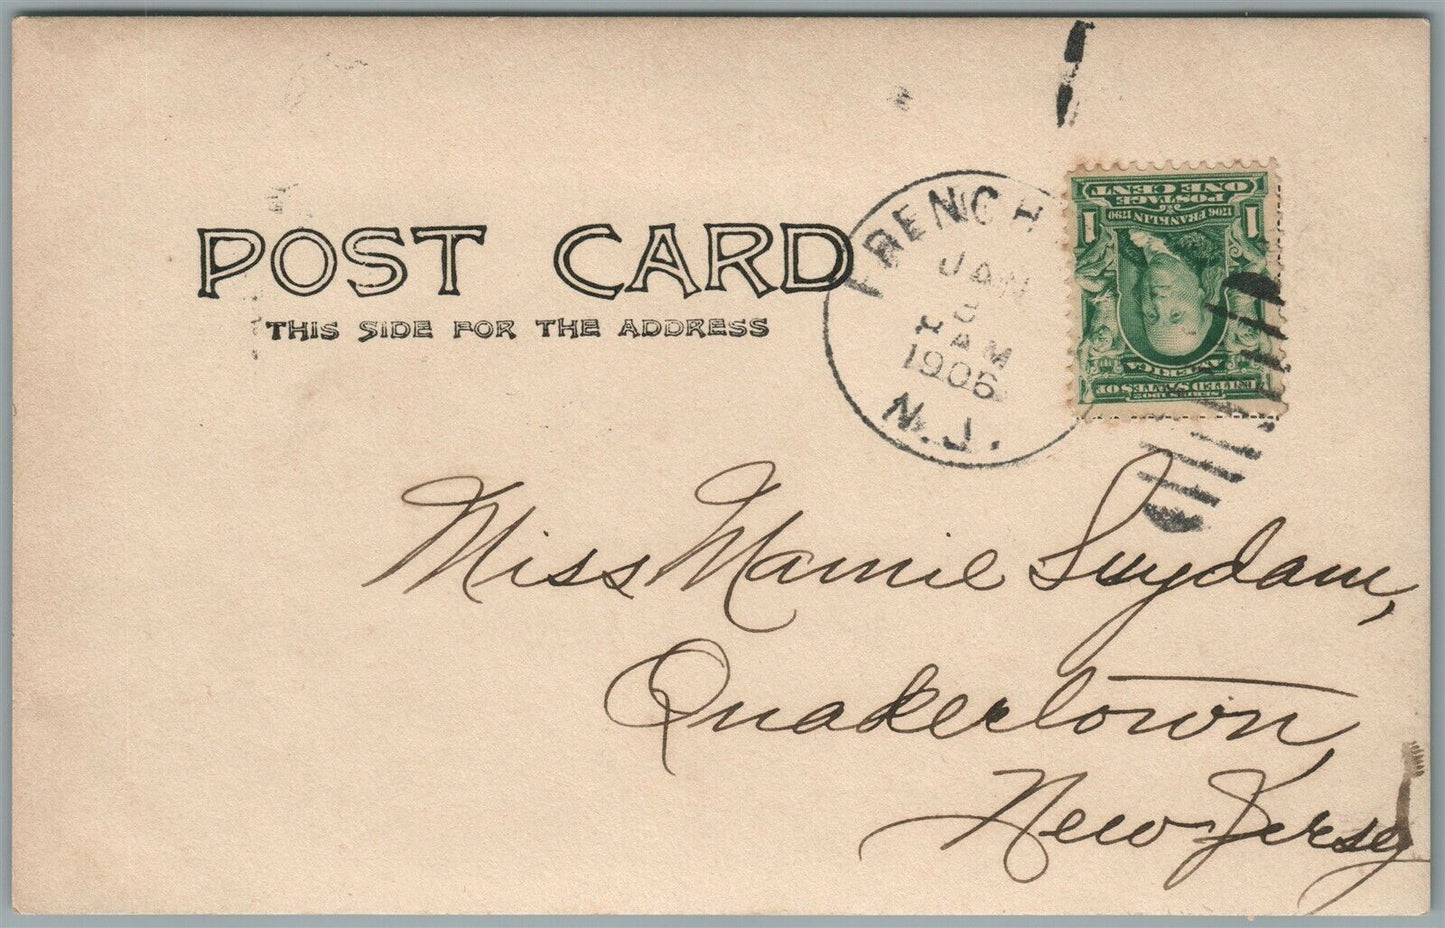 POST CARD
THIS SIDE FOR THE ADDRESS
FRENCH
JAN
3
AM
1906
N.J.
1 ONE CENT 1
POSTAGE
1706 FRANKLIN 1790
SERIES 1902
UNITED STATES OF
AMERICA
Miss Mamie Suydam,
Quakertown,
New Jersey